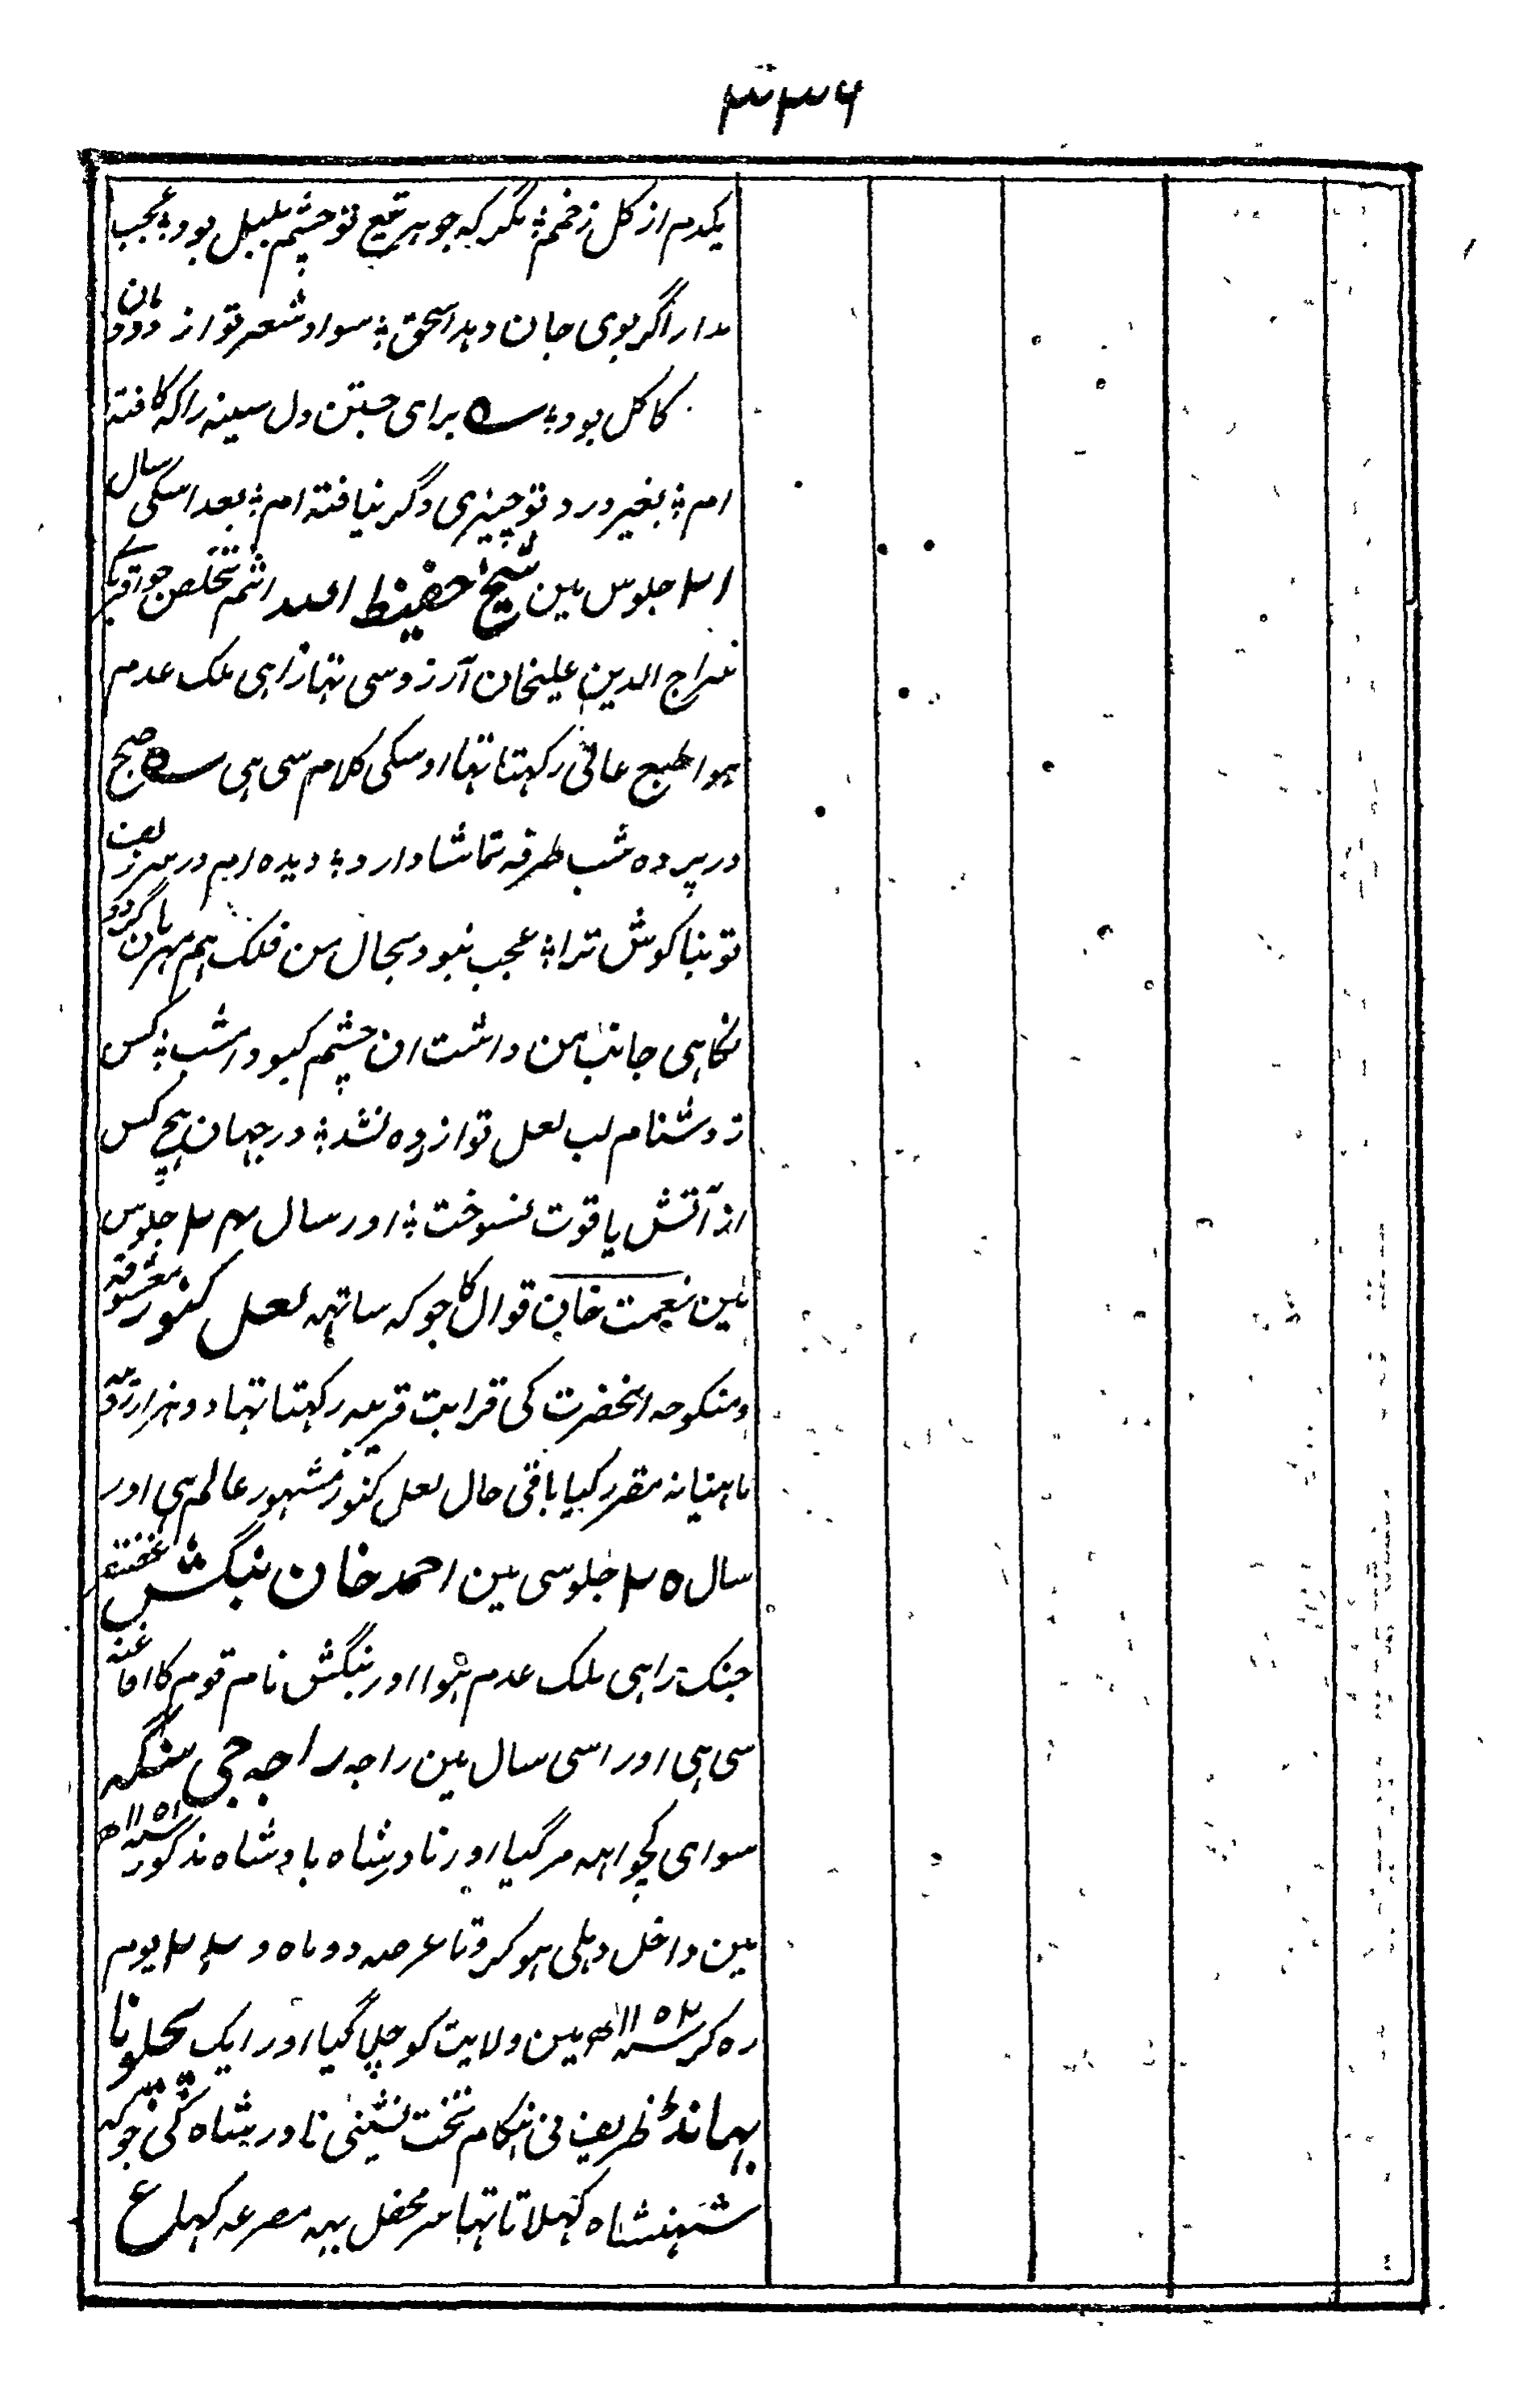 ۳۳۶
یکدم از گل زخمم ؛ مگر که جوهر تیغ تو چشم بلبل بود ؛ عجب
مدار اگر بوی جان دهد اسحق ؛ سواد شعر تو از دودمان
کاکل بود ؛ ؎ برای جستن دل سینه را که کافته
ام ؛ بغیر درد تو چیزی دگر نیافته ام ؛ بعد اسکی سال
۲۱ جلوس مین شیخ حفیظ الله اثم تخلص جو اقربا
سراج الدین علیخان آرزو سی تها راهی ملک عدم
هوا طبع عالی رکهتا تها اوسکی کلام سی هی ؎ صبح
در پرده شب طرفه تماشا دارد ؛ دیده ام در سر زلف
تو بناگوش ترا ؛ عجب نبود بحال من فلک هم مهربان گردد
نگاهی جانب من داشت ان چشم کبود امشب ؛ کس
ز دشنام لب لعل تو ازرده نشد ؛ در جهان هیچ کس
از آتش یاقوت نسوخت ؛ اور سال ۲۴ جلوس
مین نعمت خان قوال کا جو که ساتهه لعل کنور معشوقه
و منکوحه انحضرت کی قرابت قریبه رکهتا تها دو هزار روپیه
ماهیانه مقرر کیا باقی حال لعل کنور مشهور عالم هی اور
سال ۲۵ جلوسی مین احمد خان بنگش غضنفر
جنگ راهی ملک عدم هوا اور بنگش نام قوم کا افاغنه
سی هی اور اسی سال مین راجه راجه جی سنگهه
سوای کچواهه مر گیا اور نادر شاه بادشاه مذکور سنه ۱۱۵۱ھ
مین داخل دهلی هو کر و تا عرصه دو ماه و ۲۲ یوم
ره کر سنه ۱۱۵۲ھ مین ولایت کو چلا گیا اور ایک
بهانڈ ظریف نی هنگام تخت نشینی نادر شاه کی جو که
شهنشاه کهلاتا تها سر محفل یهه مصرعه کها ع